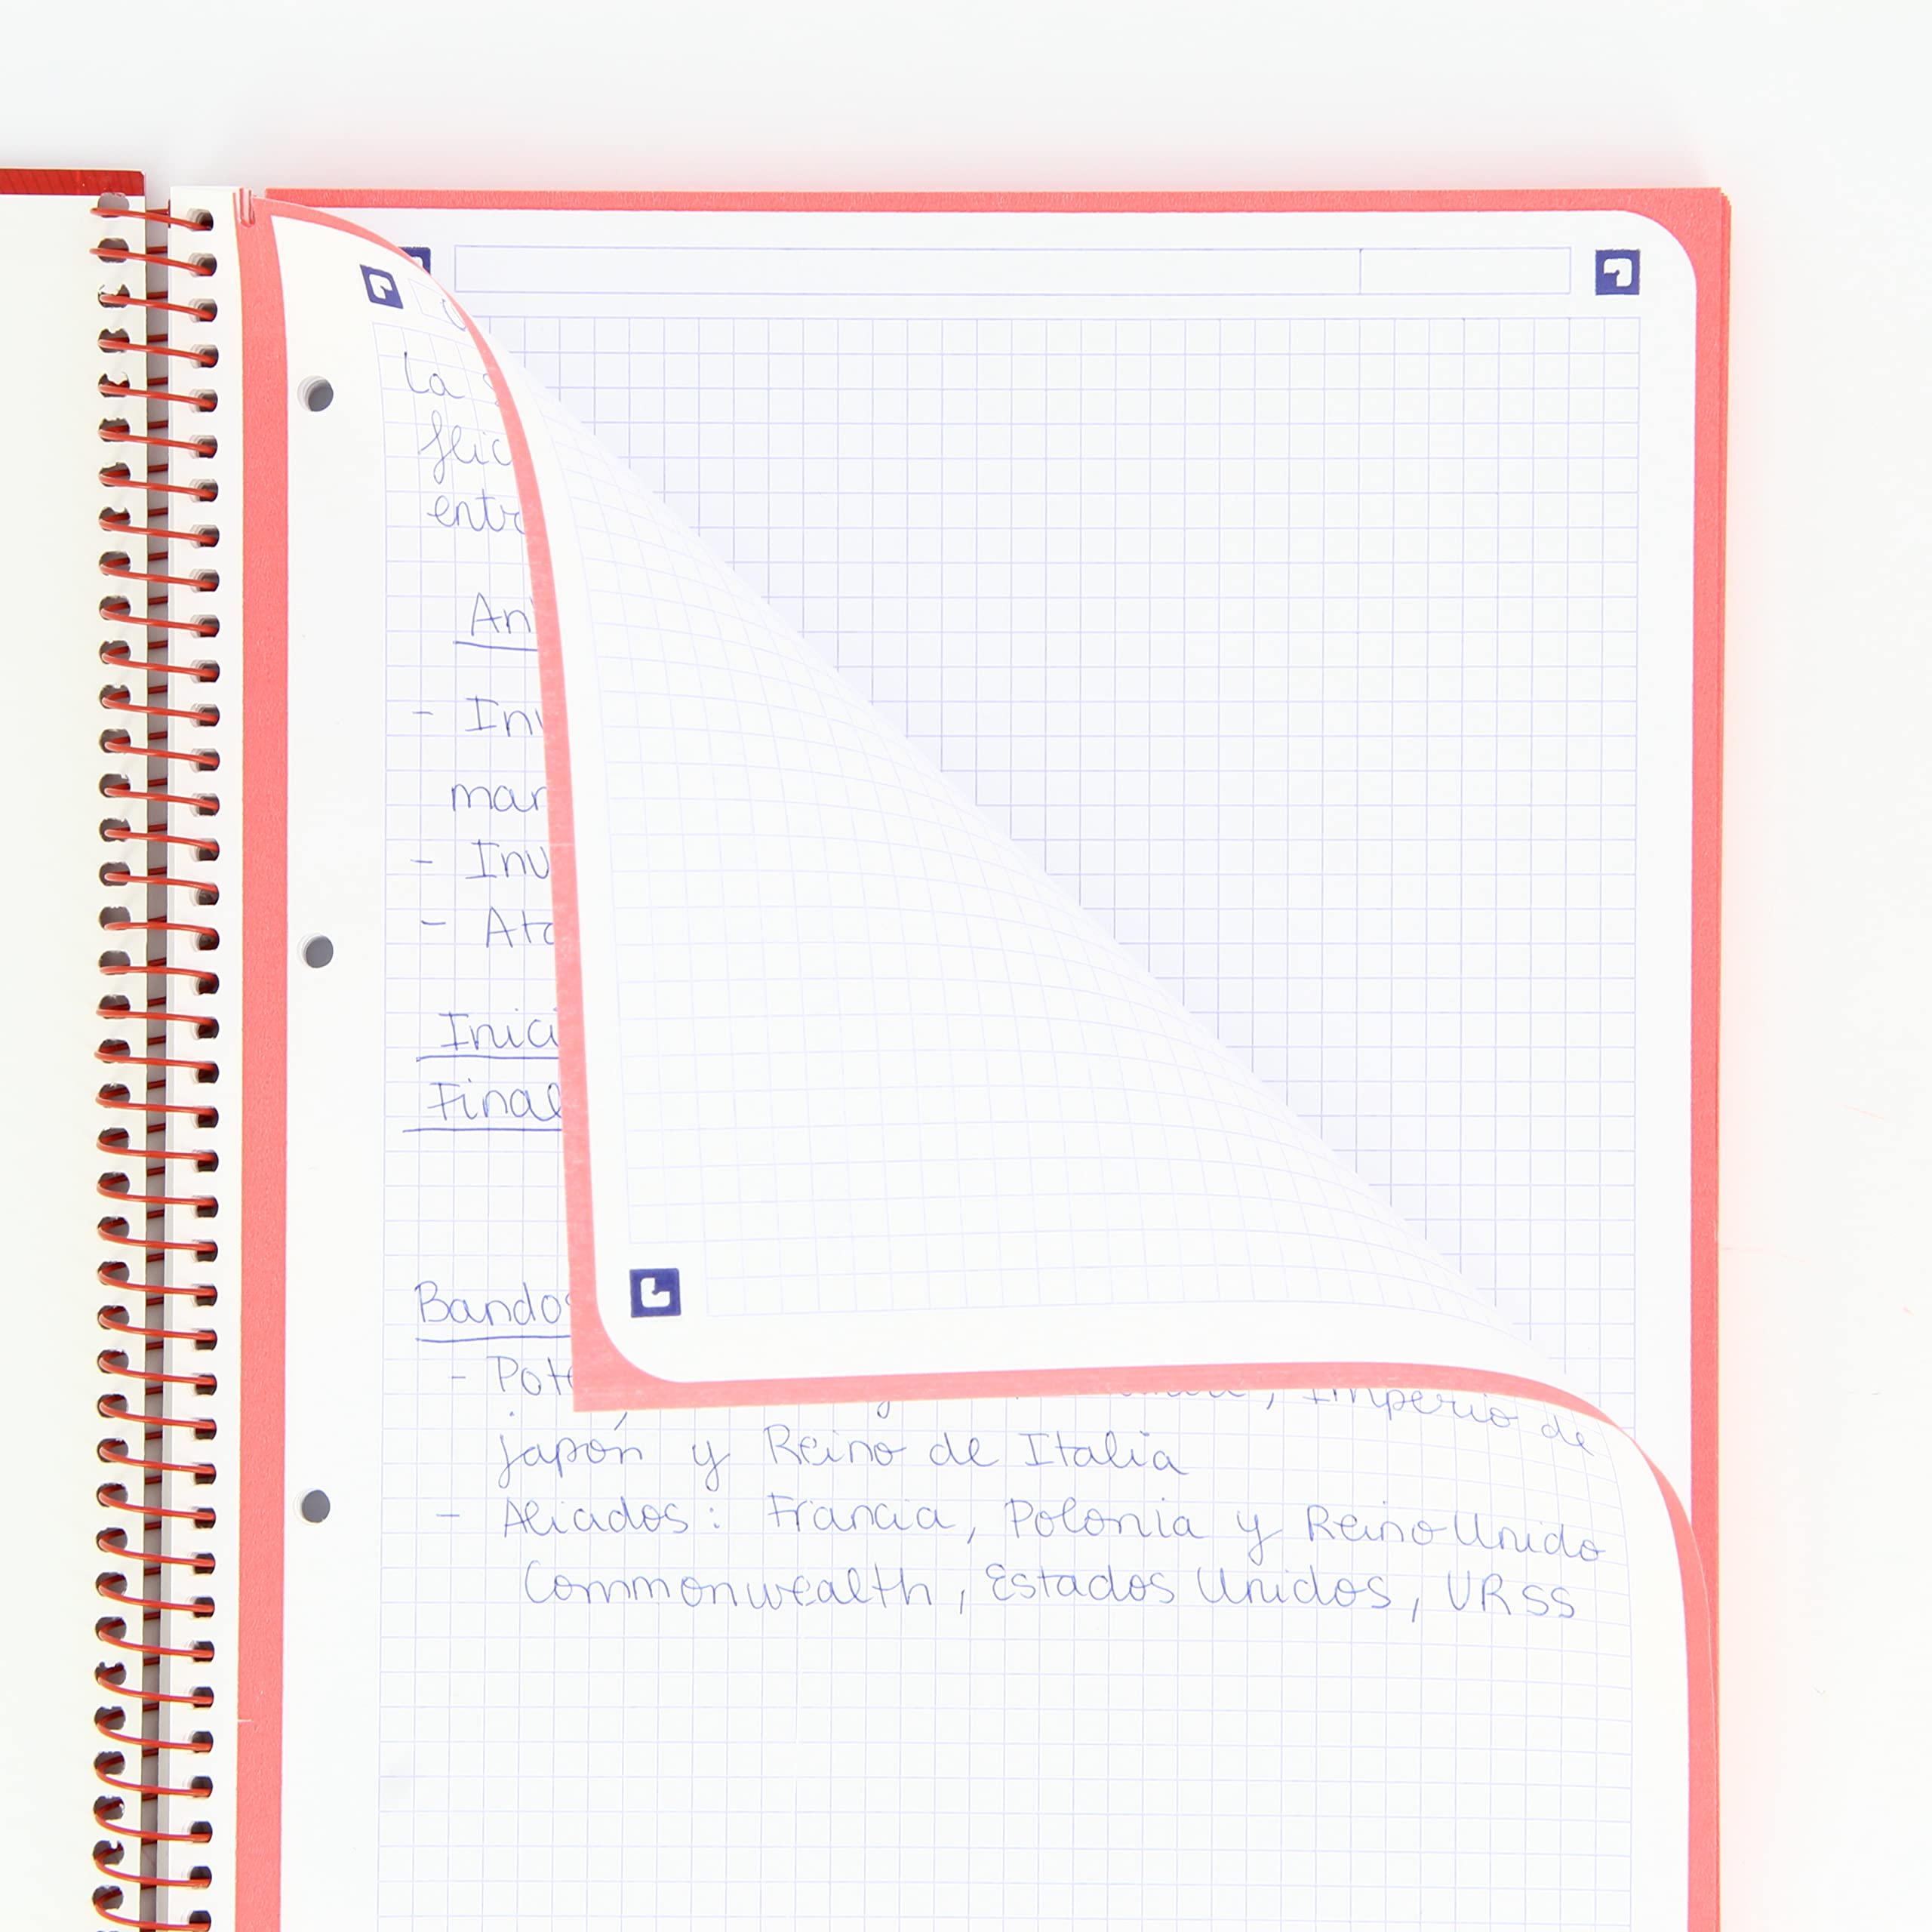 La
flic
entr
An
- Inv
mar
- Inv
- Ata
Inici
Final
Bandos
- Pote , Imperio de
japón y Reino de Italia
- Aliados: Francia, Polonia y Reino Unido
Commonwealth, Estados Unidos, URSS